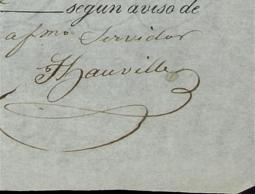 segun aviso de
afmo Servidor
Hauville